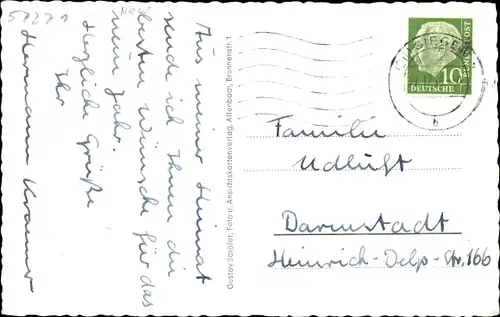 57271
Aus meiner Heimat
sende ich Ihnen die
besten Wünsche für das
neue Jahr.
Herzliche Grüße
Ihr
Hermann Kramer
Gustav Schöler, Foto u. Ansichtskartenverlag, Attenbach, Brunnenstr. 1
SIEGEN
b
10
DEUTSCHE
BUNDESPOST
Familie
Udluft
Darmstadt
Heinrich-Delp-Str. 166